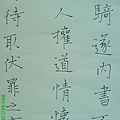 騎遂內書不
人擁道情懷
待取伏罪之